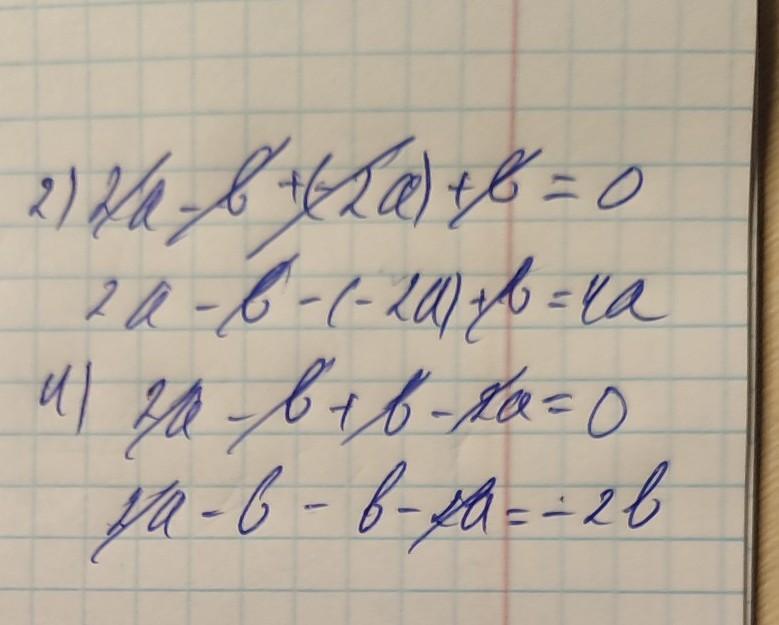 2) 2a - b + (-2a) + b = 0
2a - b - (-2a) + b = 4a
4) 2a - b + b - 2a = 0
2a - b - b - 2a = -2b